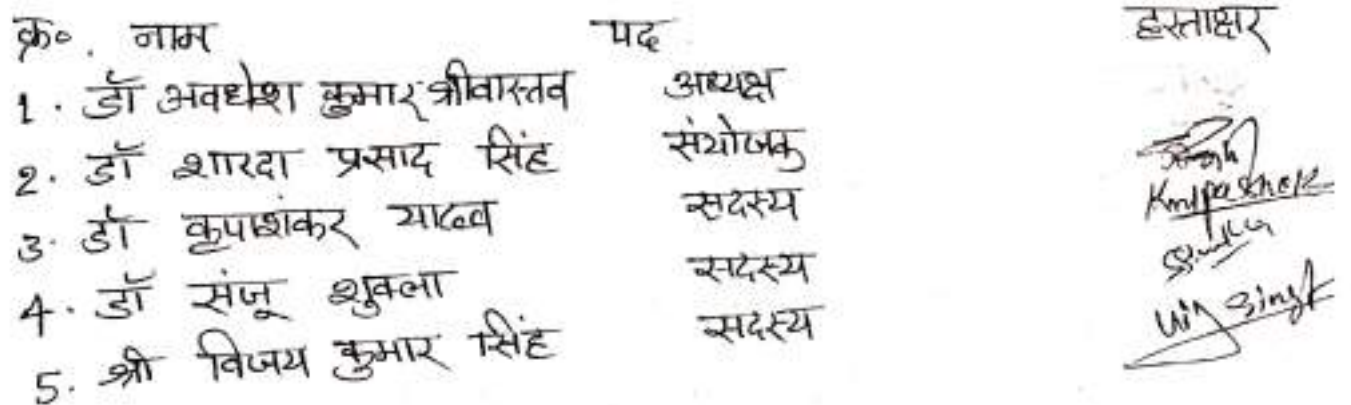 क्र०. नाम पद हस्ताक्षर
1. डॉ अवधेश कुमार श्रीवास्तव अध्यक्ष
2. डॉ शारदा प्रसाद सिंह संयोजक
3. डॉ कृपाशंकर यादव सदस्य
4. डॉ संजू शुक्ला सदस्य
5. श्री विजय कुमार सिंह सदस्य